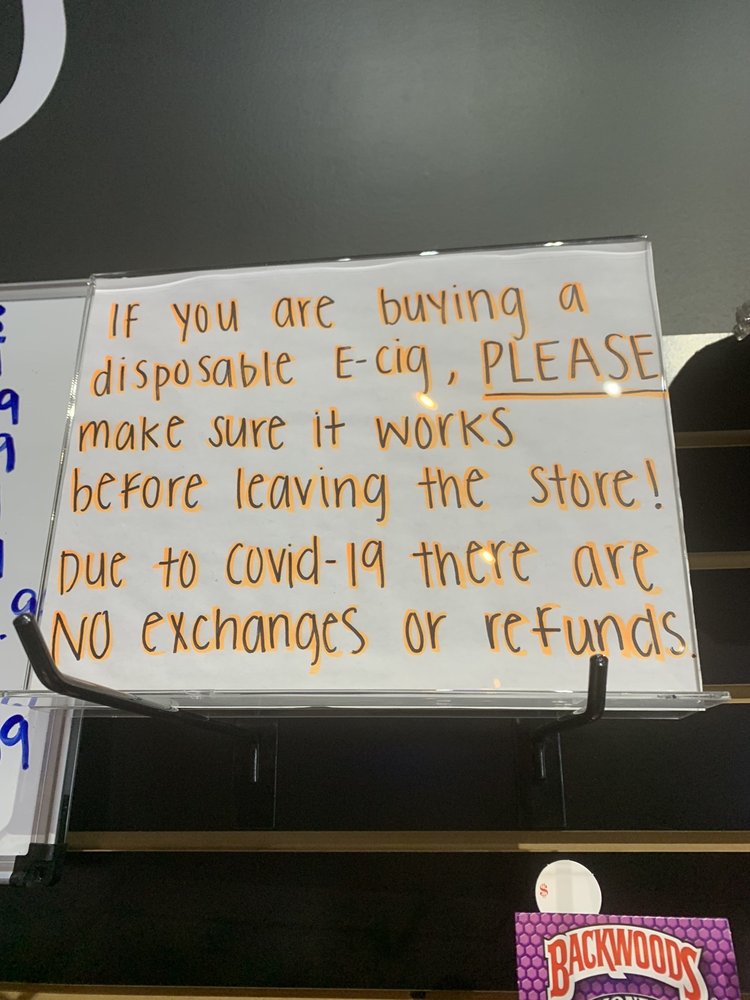 IF you are buying a
disposable E-cig, PLEASE
make sure it works
before leaving the store!
Due to covid-19 there are
NO exchanges or refunds.
9
9
9
9
$
BACKWOODS